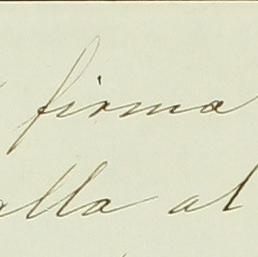 firma
alla al